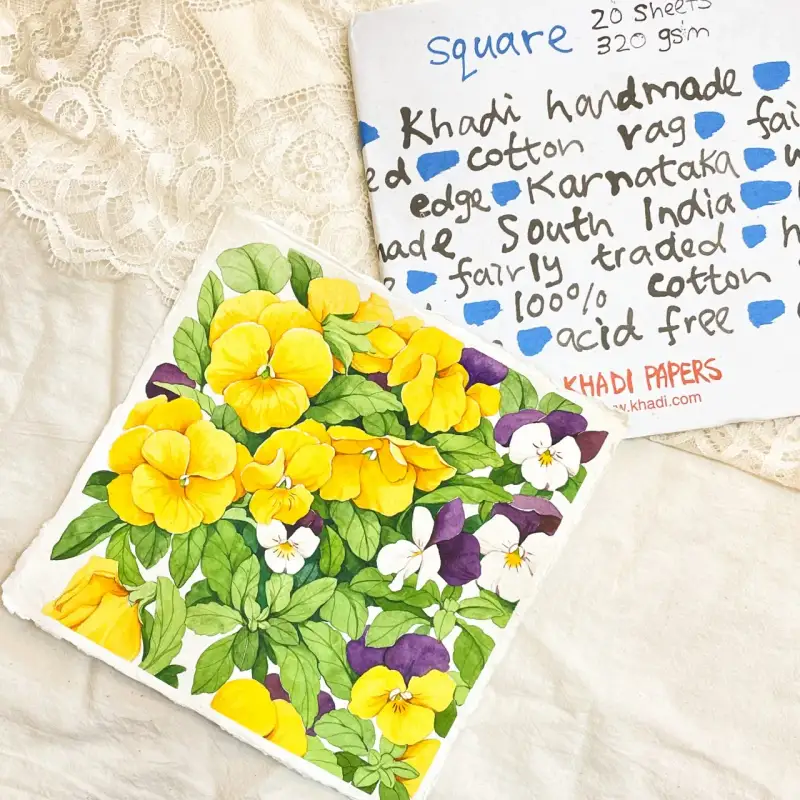 square 20 Sheets
320 gsm
Khadi handmade
cotton rag fai
ed edge Karnataka
made South India
fairly traded
100% cotton
acid free
KHADI PAPERS
w.khadi.com